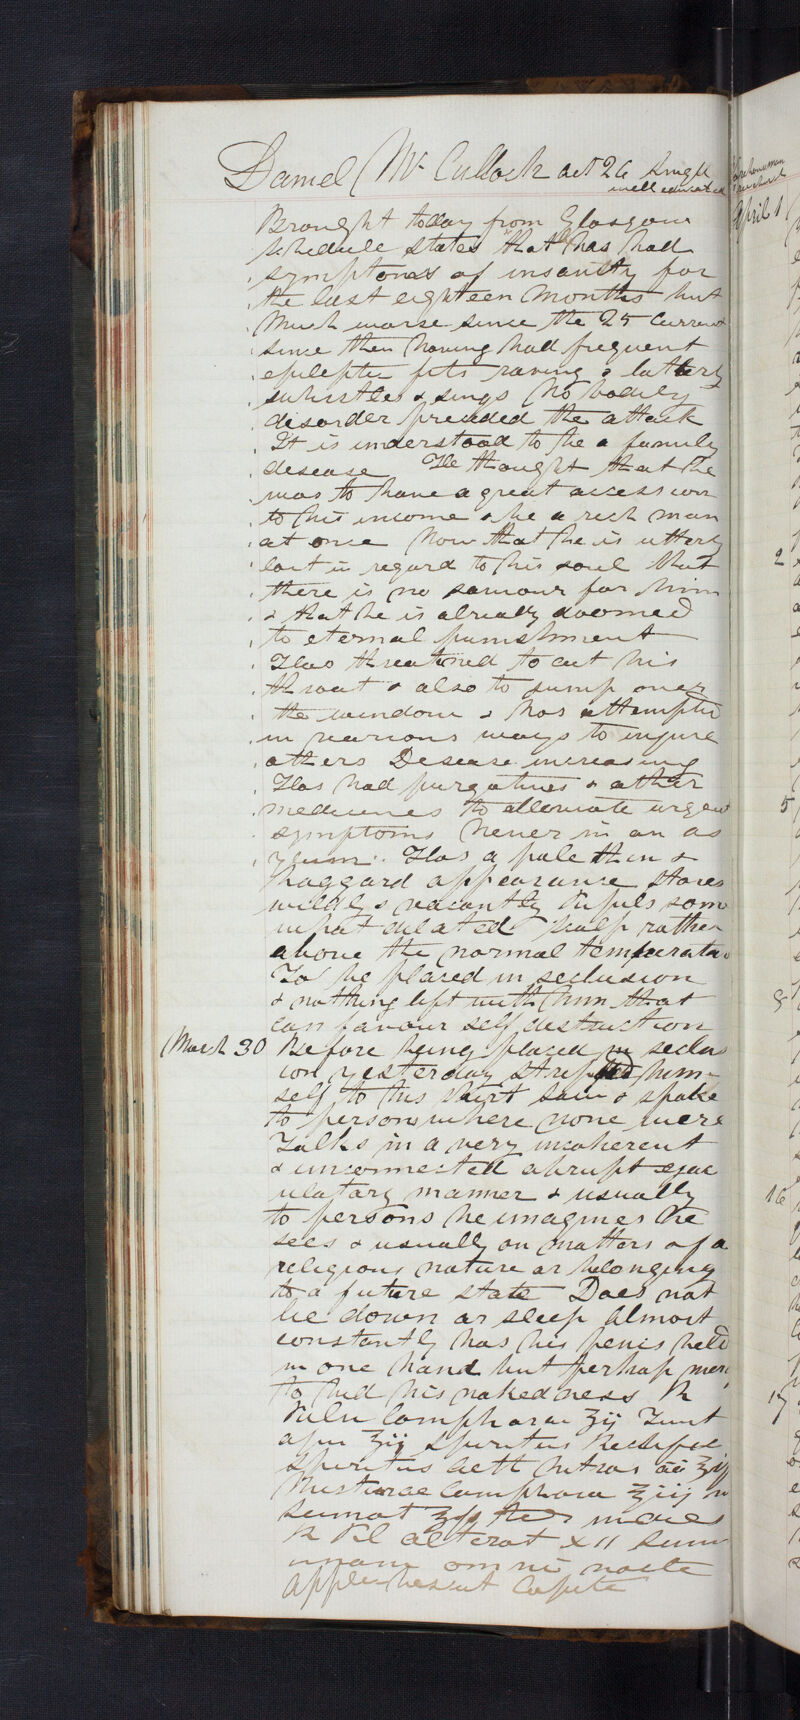 Daniel McCulloch aet 26 Single
well educated
Brought today from Glasgow
Schedule states "that he has had
symptoms of insanity for
the last eighteen months but
much worse since the 25 current
since then having had frequent
epileptic fits raving & latterly
whistles & sings No bodily
disorder preceded the attack
It is understood to be a family
desease He thought that he
was to have a great accession
to his income & be a rich man
at once Now that he is utterly
lost in regard to his soul that
there is no saviour for him
& that he is already doomed
to eternal punishment
Has threatened to cut his
throat & also to jump over
the window & has attempted
in various ways to injure
others Desease increasing
Has had purgatives & other
medicines to alleviate urgent
symptoms Never in an as
ylum". Has a pale thin &
haggard appearance Stares
wildly & vacantly Pupils some
what dilated Scalp rather
above the normal temperature
To be placed in seclusion
& nothing left with him that
can favour self destruction
March 30 Before being placed in seclus
ion yesterday stripped him-
self to his shirt saw & spoke
to persons where none were
Talks in a very incoherent
& unconnected abrupt ejac
ulatory manner & usually
to persons he imagines he
sees & usually on matters of a
religious nature or belonging
to a future state Does not
lie down or sleep Almost
constantly has his penis held
in one hand but perhaps merely
to hid his nakedness R
Pulv Camphorae ʒij Tinct
ʒij Spiritus Rectific
Spiritus aeth nitros āā
Misturae Camphorae ʒiij
Sumat ter in dies
R Pil alterat XII Sum
unam omni nocte
Appl capite
April 1
2
5
8
16
17